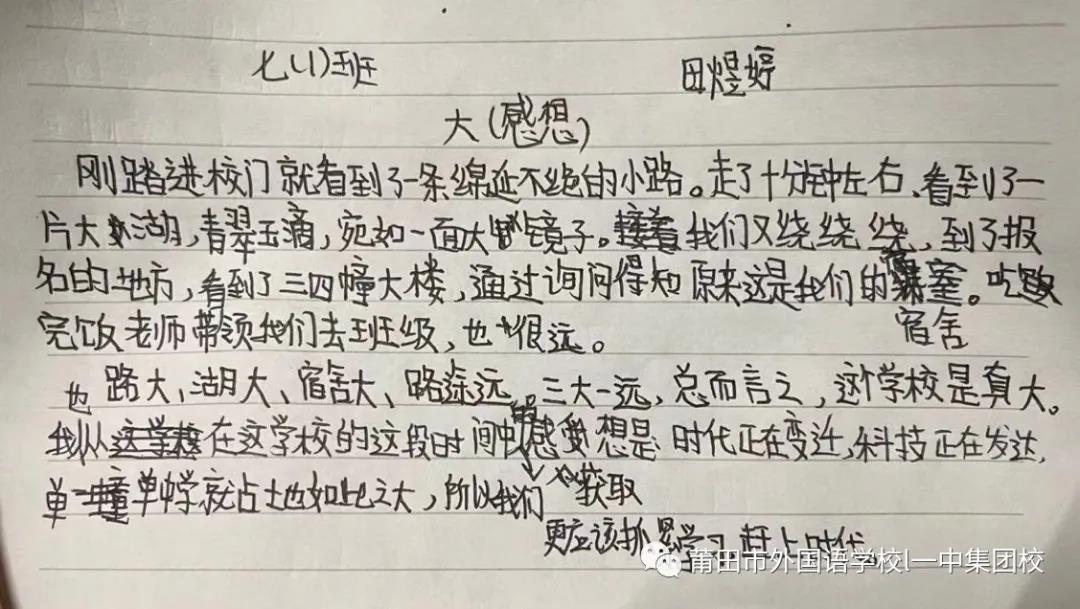 七(1)班 田煜婷
大(感想)
刚踏进校门就看到了一条绵延不绝的小路。走了十分钟左右、看到了一
片大湖,青翠玉滴,宛如一面大镜子。我们又绕绕绕,到了报
名的地方,看到了三四幢大楼,通过询问得知原来这是我们的宿舍。吃
完饭老师带领我们去班级,也很远。
也路大、湖大、宿舍大、路途远。三大一远,总而言之,这个学校是真大。
我从在这学校的这段时间中感想是时代正在变迁,科技正在发达,
单单中学就占地如此之大,所以我们
更应该抓紧学习赶上时代。
获取
莆田市外国语学校|一中集团校